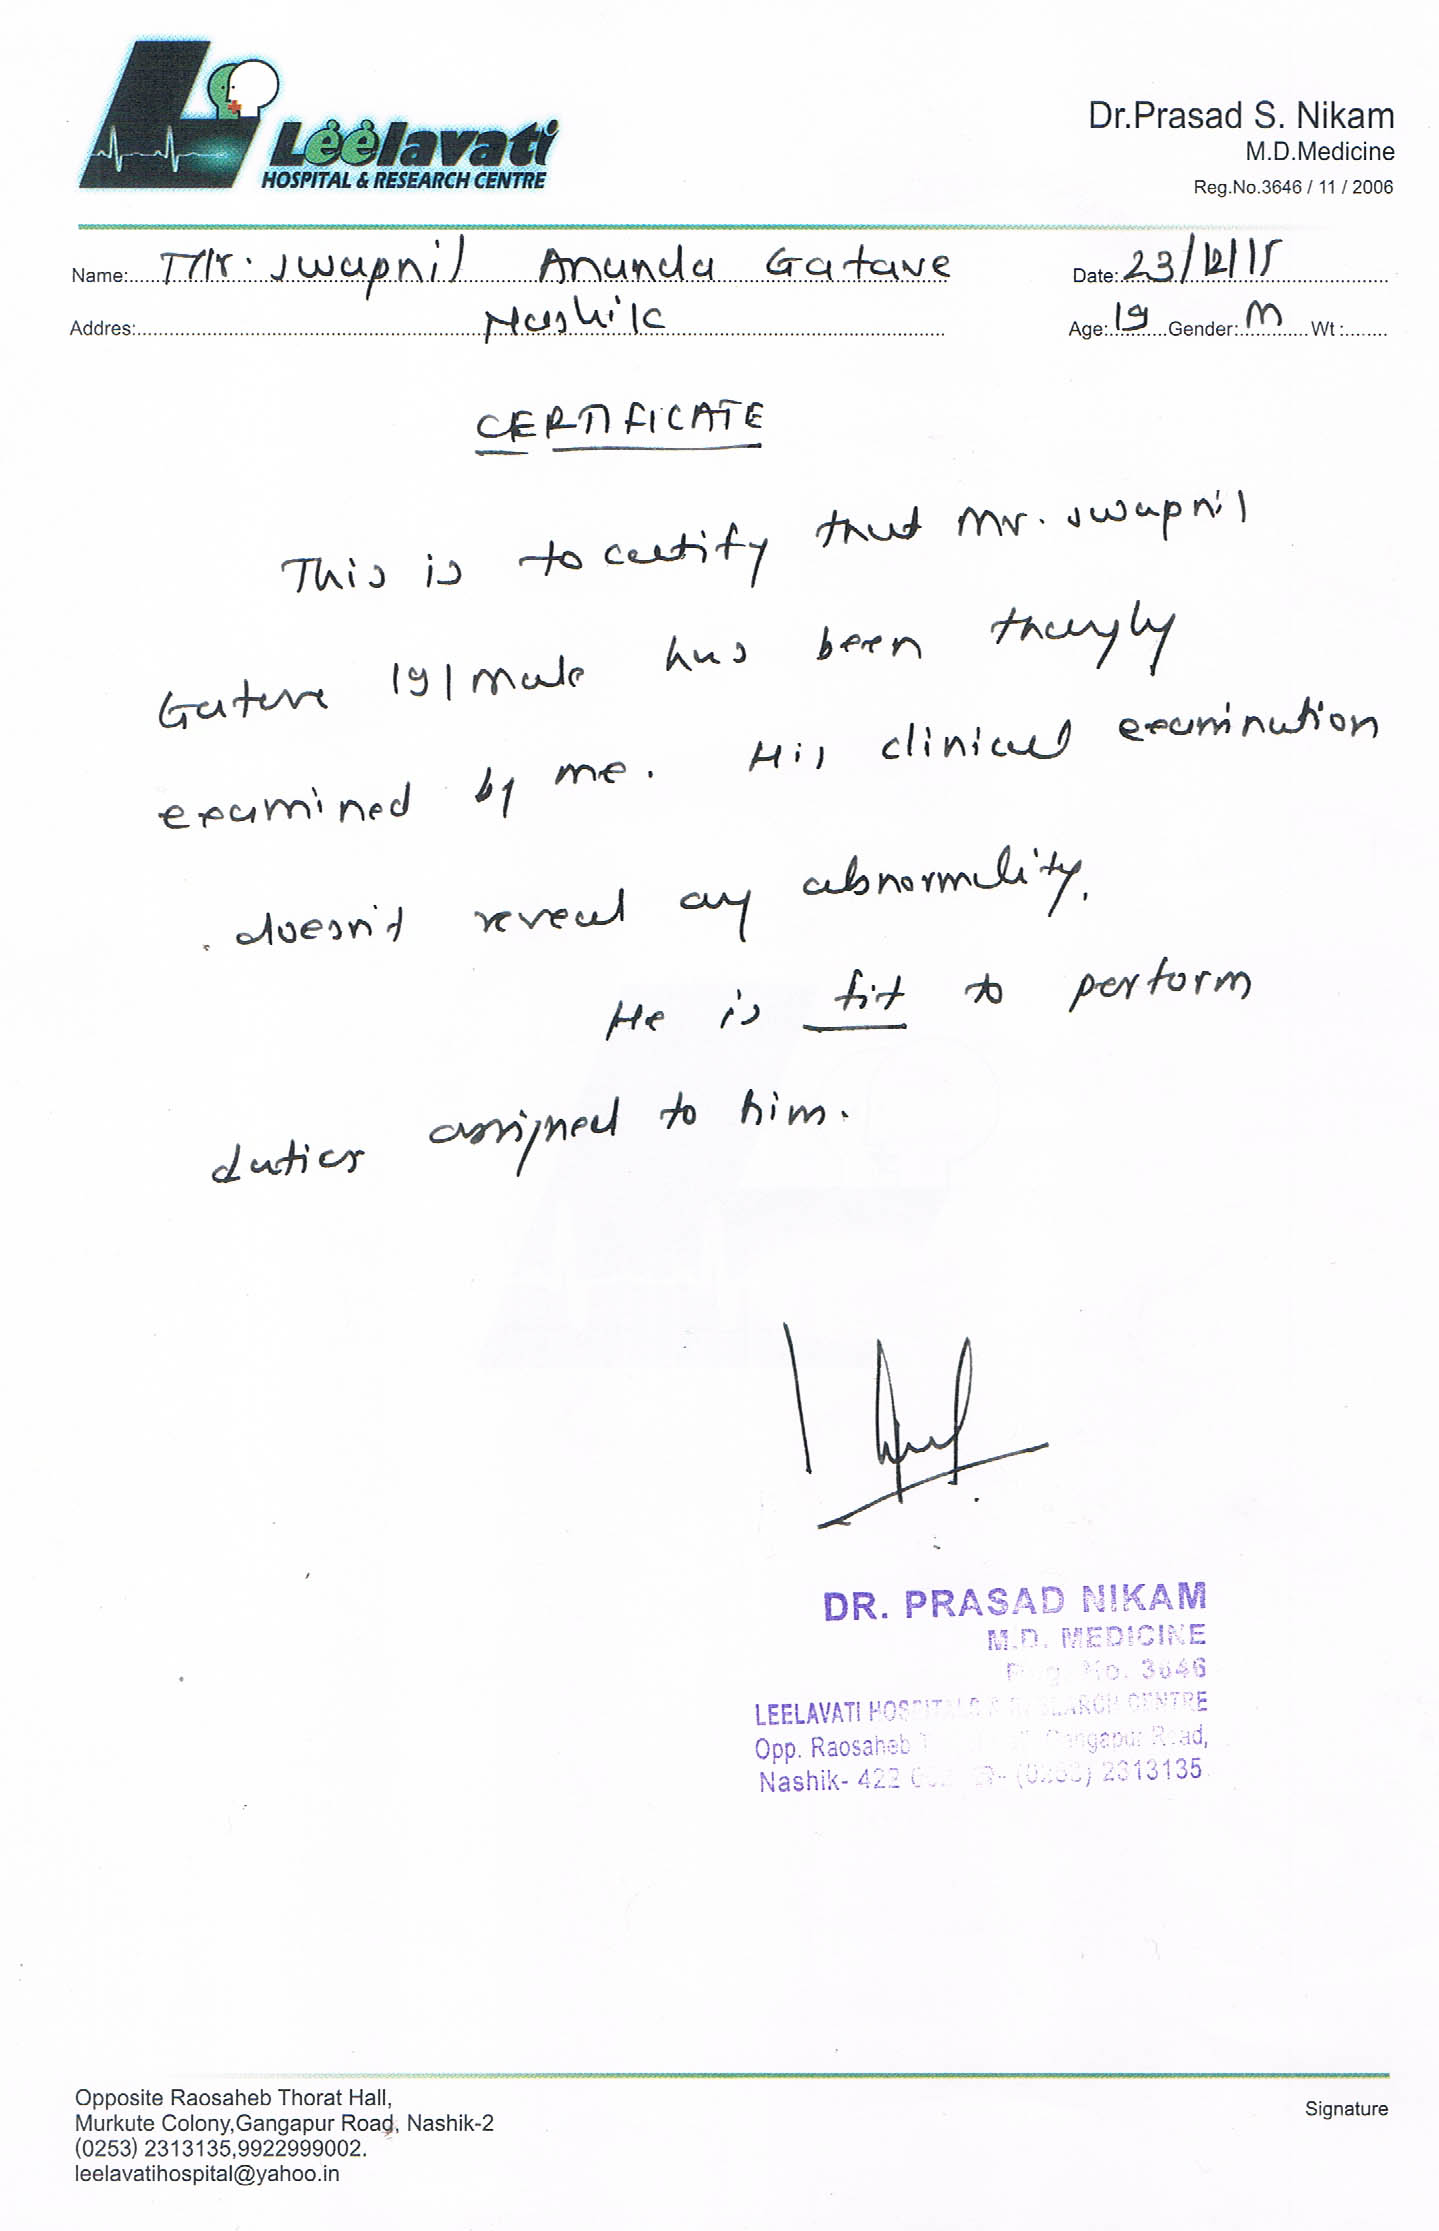 Leelavati
HOSPITAL & RESEARCH CENTRE
Dr.Prasad S. Nikam
M.D.Medicine
Reg.No.3646 / 11 / 2006
Name: Mr. Swapnil Ananda Gatave Date: 23/12/15
Addres: Nashik Age: 19 Gender: M Wt :
CERTIFICATE
This is to certify that Mr. Swapnil
Gatave 19/Male has been thorughly
examined by me. His clinical examination
doesn't reveal any abnormality.
He is fit to perform
duties assigned to him.
DR. PRASAD NIKAM
M.D. MEDICINE
Reg. No. 3646
LEELAVATI HOSPITALS & RESEARCH CENTRE
Opp. Raosaheb Gangapur Road,
Nashik- 422 (0253) 2313135
Opposite Raosaheb Thorat Hall,
Murkute Colony,Gangapur Road, Nashik-2
(0253) 2313135,9922999002.
leelavatihospital@yahoo.in
Signature